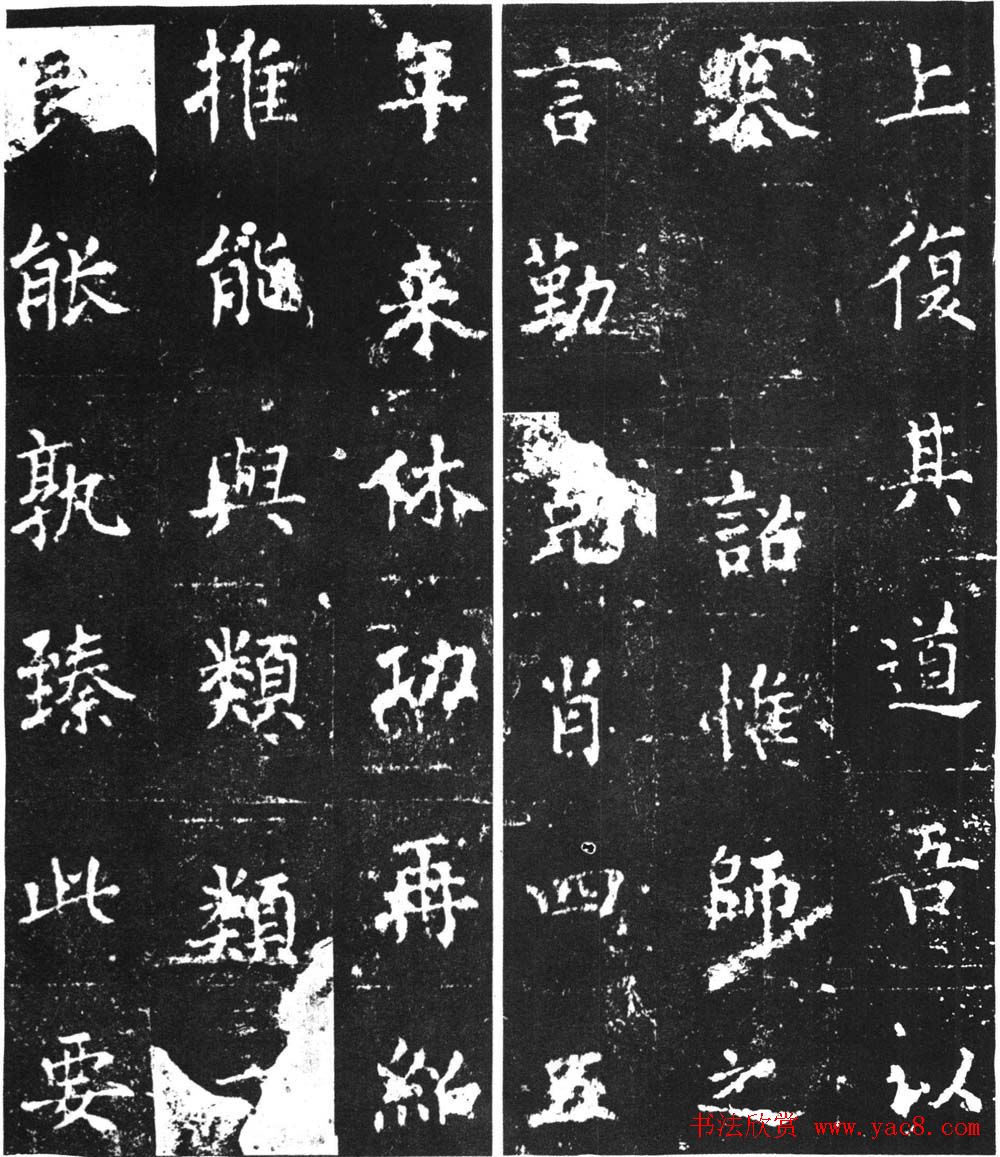 上復其道吾以
塞詔惟師之
言勤克肖四五
年来休功再紹
推能與類類
長能孰臻此要
书法欣赏 www.yac8.com